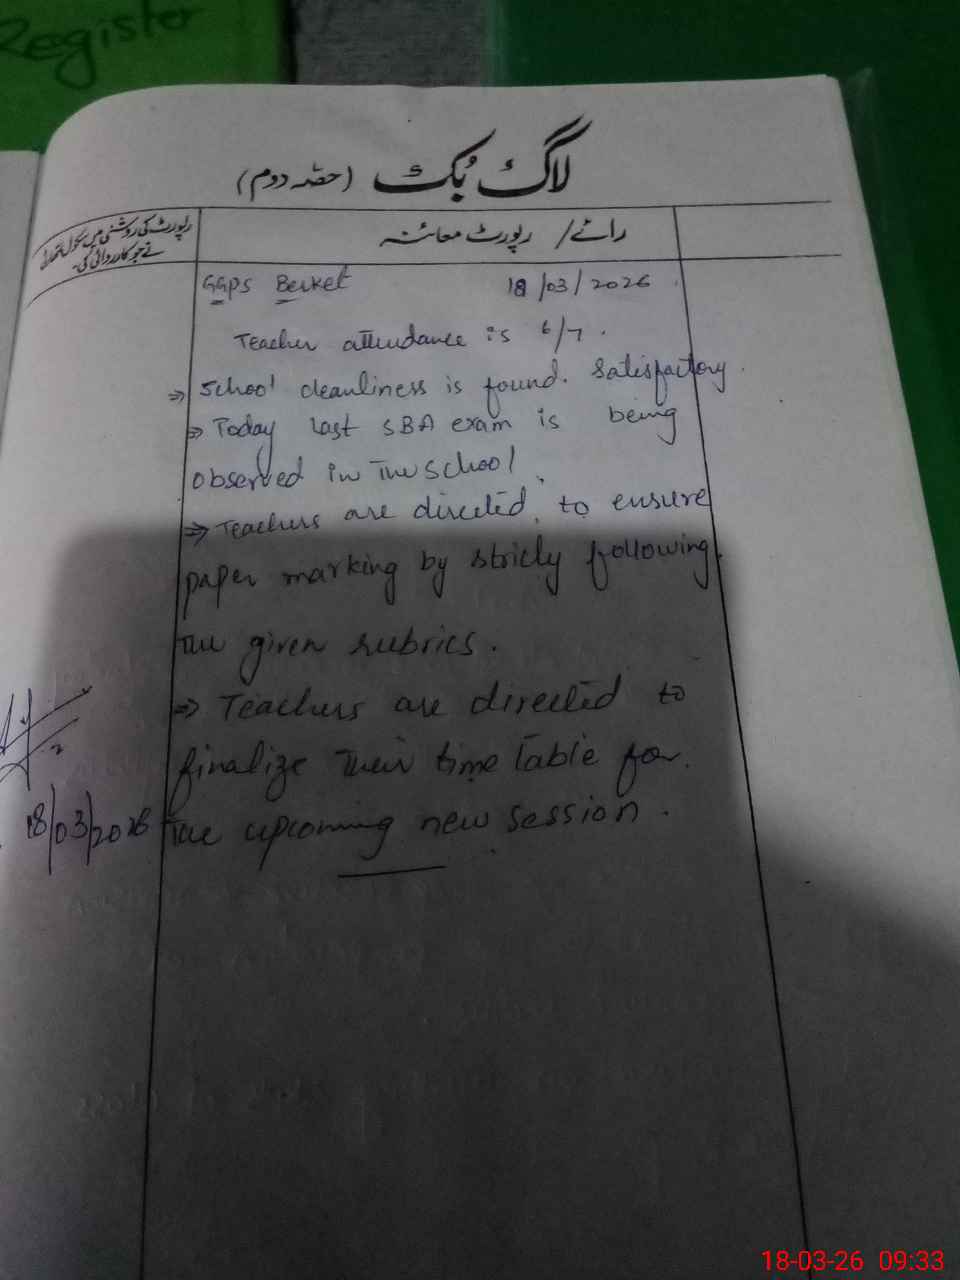 Register
لاگ بُک (حصّہ دوم)
رائے / رپورٹ معائنہ
رپورٹ کی روشنی میں سکول ھٰذا
نے جو کارروائی کی۔
GGPS Berket 18/03/2026
Teacher attendance is 6/7.
⇒ School cleanliness is found. Satisfactory.
⇒ Today last SBA exam is being
observed in the school.
⇒ Teachers are directed, to ensure
paper marking by stricly following
the given rubrics.
⇒ Teachers are directed to
finalize their time table for
the upcoming new session.
18/03/2026
18-03-26 09:33